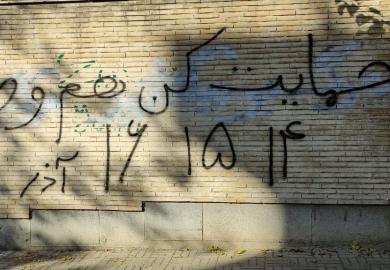 حمایت کن هم و
۱۴ ۱۵ ۱۶ آذر